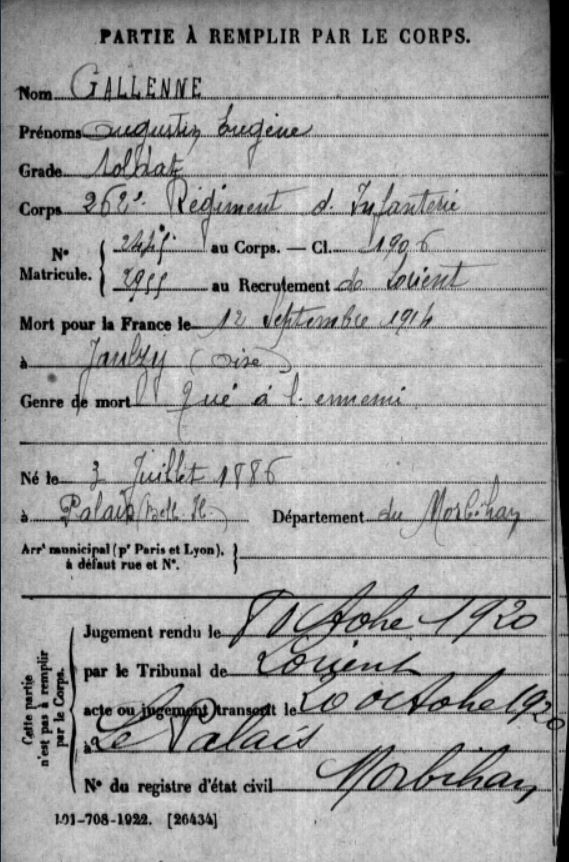 PARTIE À REMPLIR PAR LE CORPS.
Nom GALLENNE
Prénoms Augustin Eugène
Grade Soldat
Corps 262e Régiment d'Infanterie
N° Matricule. { au Corps. — Cl. 1906
2955 au Recrutement de Lorient
Mort pour la France le 12 Septembre 1914
à Jaulzy (Oise)
Genre de mort Tué à l'ennemi
Né le 3 Juillet 1886
à Palais (Belle-Ile) Département du Morbihan
Arrt municipal (pr Paris et Lyon), à défaut rue et N°. }
Cette partie n'est pas à remplir par le Corps.
Jugement rendu le 8 octobre 1920
par le Tribunal de Lorient
acte ou jugement transcrit le 20 octobre 1920
à Le Palais
Morbihan
N° du registre d'état civil
101-708-1922. [26434]